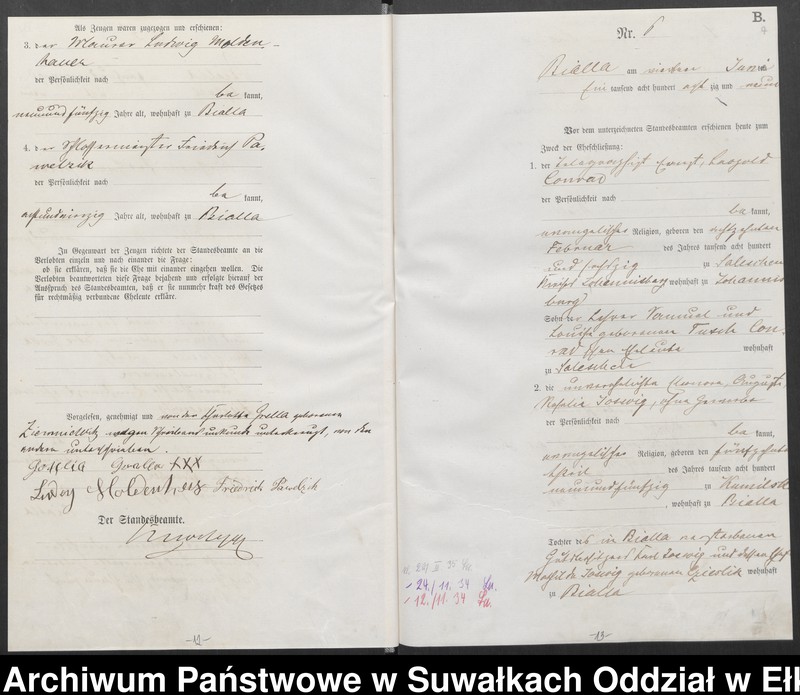 Als Zeugen waren zugezogen und erschienen:
3. der Maurer Ludwig Molden-
hauer
der Persönlichkeit nach
be kannt,
neunundfünfzig Jahre alt, wohnhaft zu Bialla
4. der Schlossermeister Friedrich Pa-
welzik
der Persönlichkeit nach
be kannt,
achtundvierzig Jahre alt, wohnhaft zu Bialla
In Gegenwart der Zeugen richtete der Standesbeamte an die
Verlobten einzeln und nach einander die Frage:
ob sie erklären, daß sie die Ehe mit einander eingehen wollen. Die
Verlobten beantworteten diese Frage bejahend und erfolgte hierauf der
Ausspruch des Standesbeamten, daß er sie nunmehr kraft des Gesetzes
für rechtmäßig verbundene Eheleute erkläre.
Vorgelesen, genehmigt und von der Charlotte geborenen
wegen Schreibensunkunde unterkreuzt, von den
andern unterschrieben.
XXX
Friedrich Pawelzik
Der Standesbeamte.
-12-
B.
Nr. 6
Bialla am vierten Juni
Ein tausend acht hundert acht zig und neun
Vor dem unterzeichneten Standesbeamten erschienen heute zum
Zweck der Eheschließung:
1. der Telegraphist Ernst, Leopold
Conrad
der Persönlichkeit nach
be kannt,
evangelischer Religion, geboren den achtzehnten
Februar des Jahres tausend acht hundert
und sechzig zu Saleschen
Kreis Johannisburg wohnhaft zu Johannis
burg
Sohn der Lehrer Samuel und
Louise geborenen Con-
rad'schen Eheleute wohnhaft
zu Saleschen
2. die unverehelichte Eleonore, Auguste,
Rosalie Soswig, ohne Gewerbe
der Persönlichkeit nach
be kannt,
evangelischer Religion, geboren den fünfzehnten
des Jahres tausend acht hundert
neunundfünfzig zu
, wohnhaft zu Bialla
Tochter des in Bialla verstorbenen
Gutsbesitzers Karl Soswig und dessen Ehefrau
Mathilde Soswig geborenen wohnhaft
zu Bialla
24./11. 34
12./11. 34
-13-
Archiwum Państwowe w Suwałkach Oddział w Eł